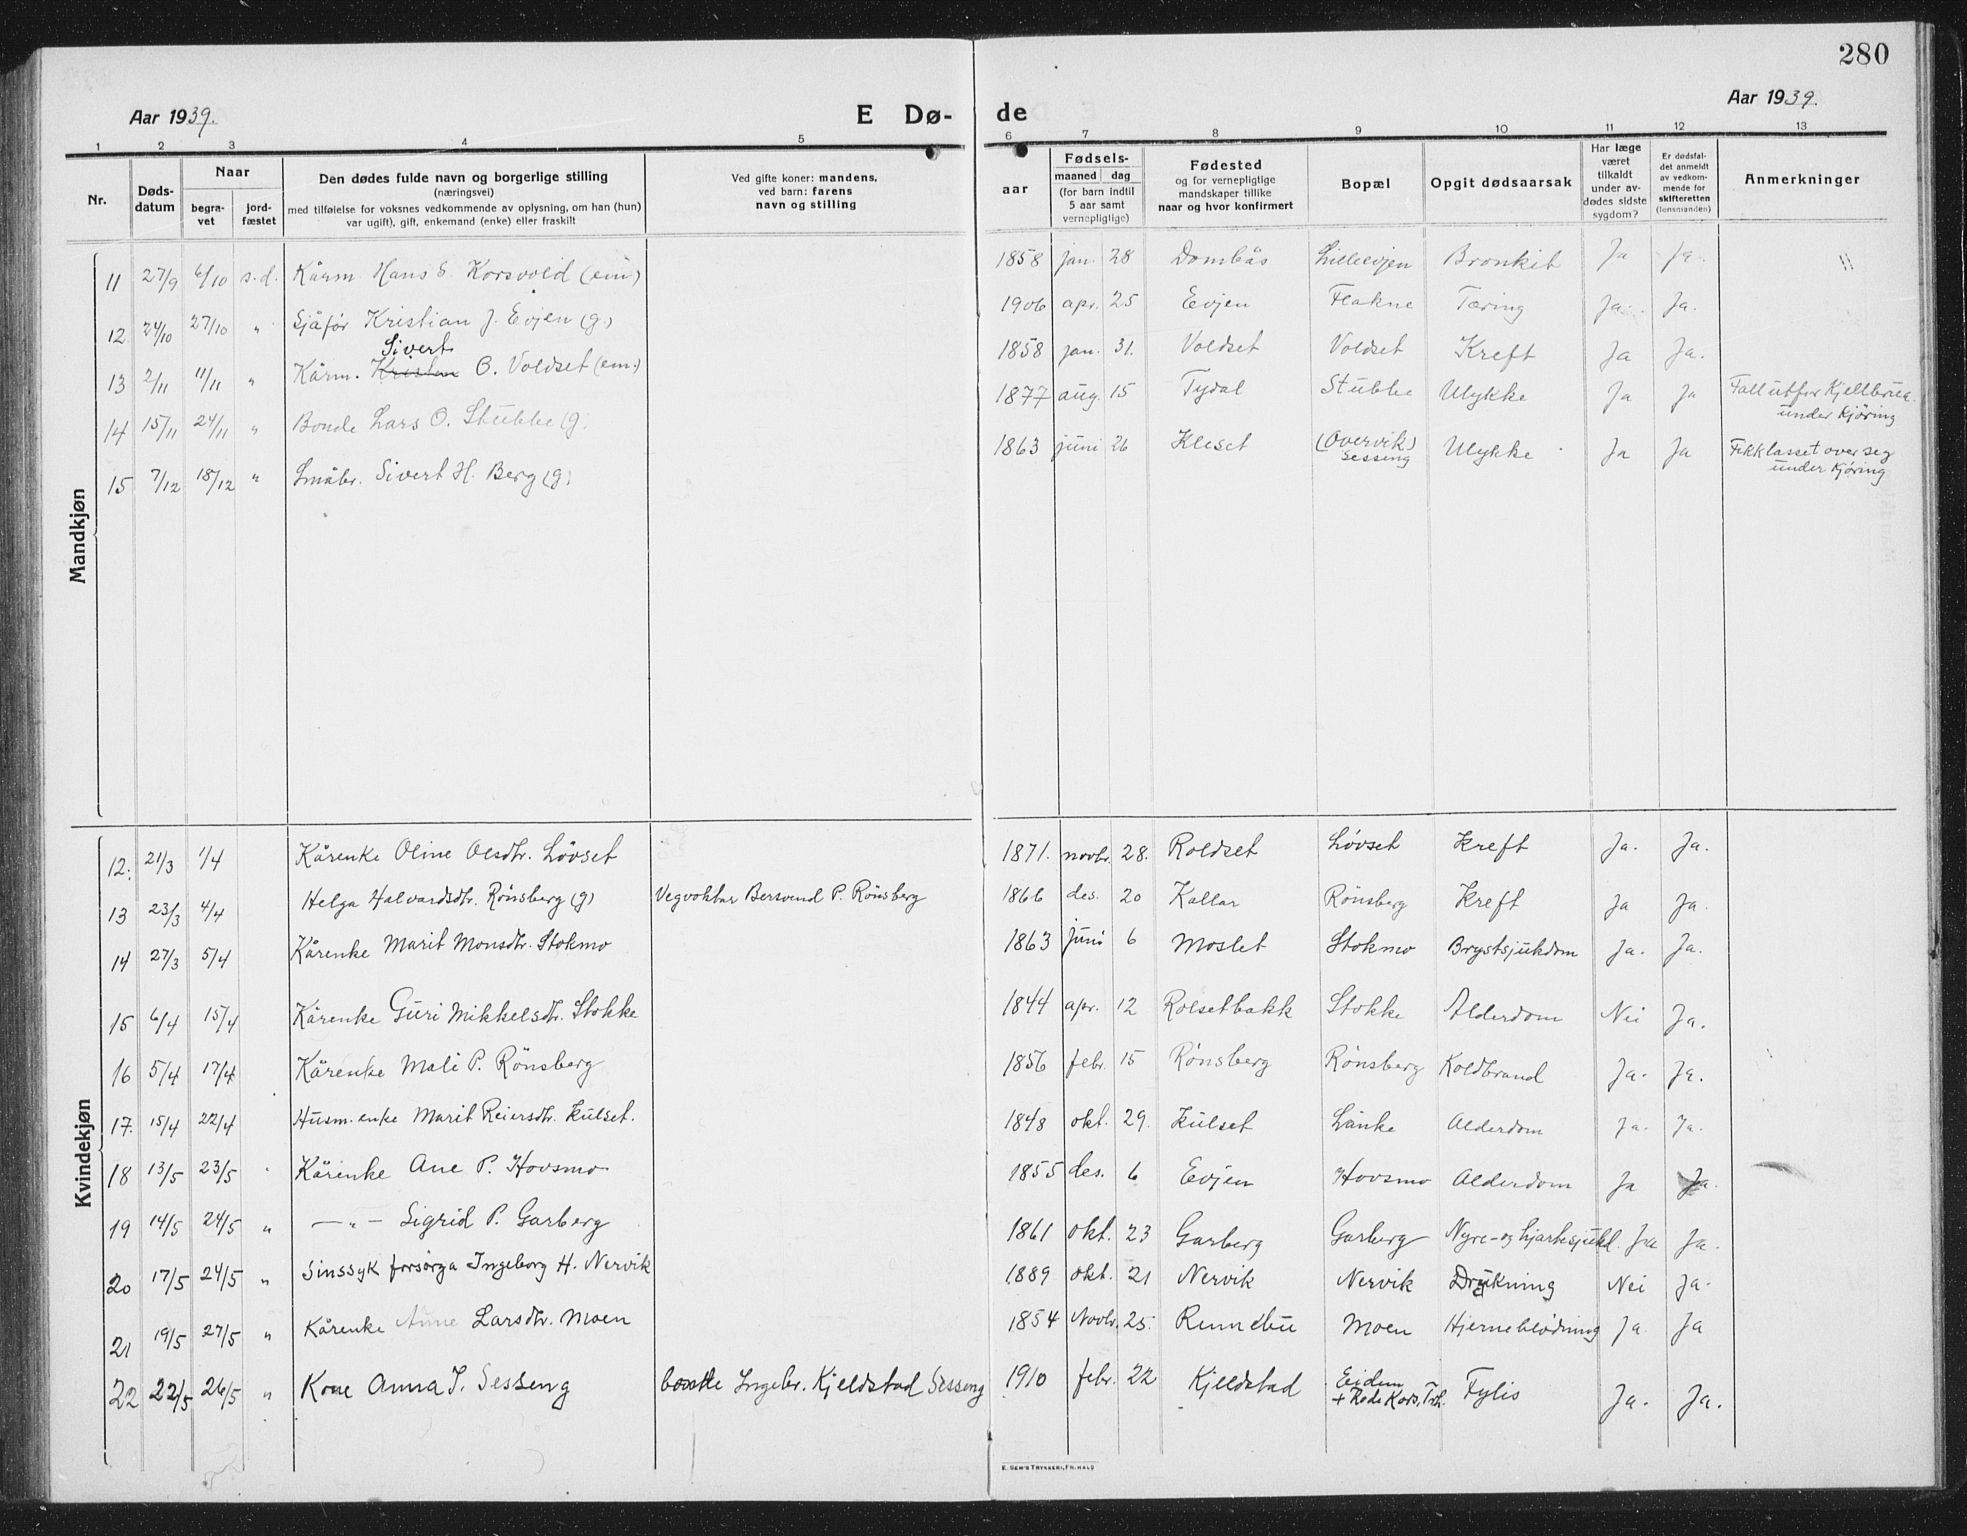 280
Aar 1939.
E Dø-
de
Aar 1939.
1 2 3 4 5 6 7 8 9 10 11 12 13
Nr.
Døds-
datum
Naar
begra-
vet
jord-
fæstet
Den dødes fulde navn og borgerlige stilling
(næringsvei)
med tilføielse for voksnes vedkommende av oplysning, om han (hun)
var ugift), gift, enkemand (enke) eller fraskilt
Ved gifte koner: mandens,
ved barn: farens
navn og stilling
aar
Fødsels-
maaned dag
(for barn indtil
5 aar samt
vernepligtige)
Fødested
og for vernepligtige
mandskaper tillike
naar og hvor konfirmert
Bopæl
Opgit dødsaarsak
Har læge
været
tilkaldt
under av-
dødes sidste
sygdom?
Er dødsfal-
det anmeldt
av vedkom-
mende for
skifteretten
(lensmanden)
Anmerkninger
Mandkjøn
11 27/9 6/10 s.d. Kårm. Hans E. Korsvold (em) 1858 jan. 28 Dombås Lilleevjen Bronkit Ja Ja. "
12 24/10 27/10 " Sjåfør Kristian J. Evjen (g.) 1906 apr. 25 Evjen Flakne Tæring Ja. Ja.
Sivert
13 2/11 11/11 " Kårm. Kristen O. Voldset (em.) 1858 jan. 31. Voldset Voldset Kreft Ja Ja.
14 15/11 24/11 " Bonde Lars O. Stubbe (g. 1877 aug. 15 Tydal Stubbe Ulykke Ja Ja Fall utfor Kjellbrua
under kjøring
15 7/12 18/12 " Småbr. Sivert H. Berg (g) 1863 juni 26 Kleset (Overvik) Ulykke Ja Ja Fikk lasset over seg
Sesseng under kjøring
Kvindekjøn
12. 21/3 1/4 Kårenke Oline Olsdtr. Løvset 1871. novbr. 28. Roldset Løvset Kreft Ja. Ja.
13 23/3 4/4 Helga Halvardsdtr. Rønsberg (g) Vegvoktar Bersvend P. Rønsberg 1866 des. 20 Kallar Rønsberg Kreft Ja Ja.
14 27/3 5/4 Kårenke Marit Monsdtr. Stokmo 1863 juni 6 Moslet Stokmo Brystsjukdom Ja. Ja.
15 6/4 15/4 Kårenke Guri Mikkelsdtr. Stokke 1844 apr. 12 Rolsetbakk Stokke Alderdom Nei Ja.
16 5/4 17/4 Kårenke Mali P. Rønsberg 1856 febr. 15 Rønsberg Rønsberg Koldbrand Ja. Ja.
17. 15/4 22/4 Husm. enke Marit Reiersdtr. Kulset. 1848 okt. 29. Kulset Lånke Alderdom Ja. Ja.
18 13/5 23/5 Kårenke Ane P. Hovsmo 1855 des. 6 Evjen Hovsmo Alderdom Ja Ja.
19 14/5 24/5 " — " — Sigrid P. Garberg 1861 okt. 23 Garberg Garberg Nyre- og hjartesjukd. Ja Ja.
20 17/5 24/5 " Sinssyk forsørga Ingeborg H. Nervik 1889 okt. 21 Nervik Nervik Drukning Nei Ja.
21 19/5 27/5 " Kårenke Anne Larsdtr. Moen 1854 Novbr. 25. Rennebu Moen Hjerneblødning Ja. Ja
22 22/5 26/5 " Kone Anna J. Sesseng bonde Ingebr. Kjeldstad Sesseng 1910 febr. 22 Kjeldstad Eidum Fylis Ja. Ja.
+ Røde Kors, Trh.
E. SEM'S TRYKKERI, FR.HALD